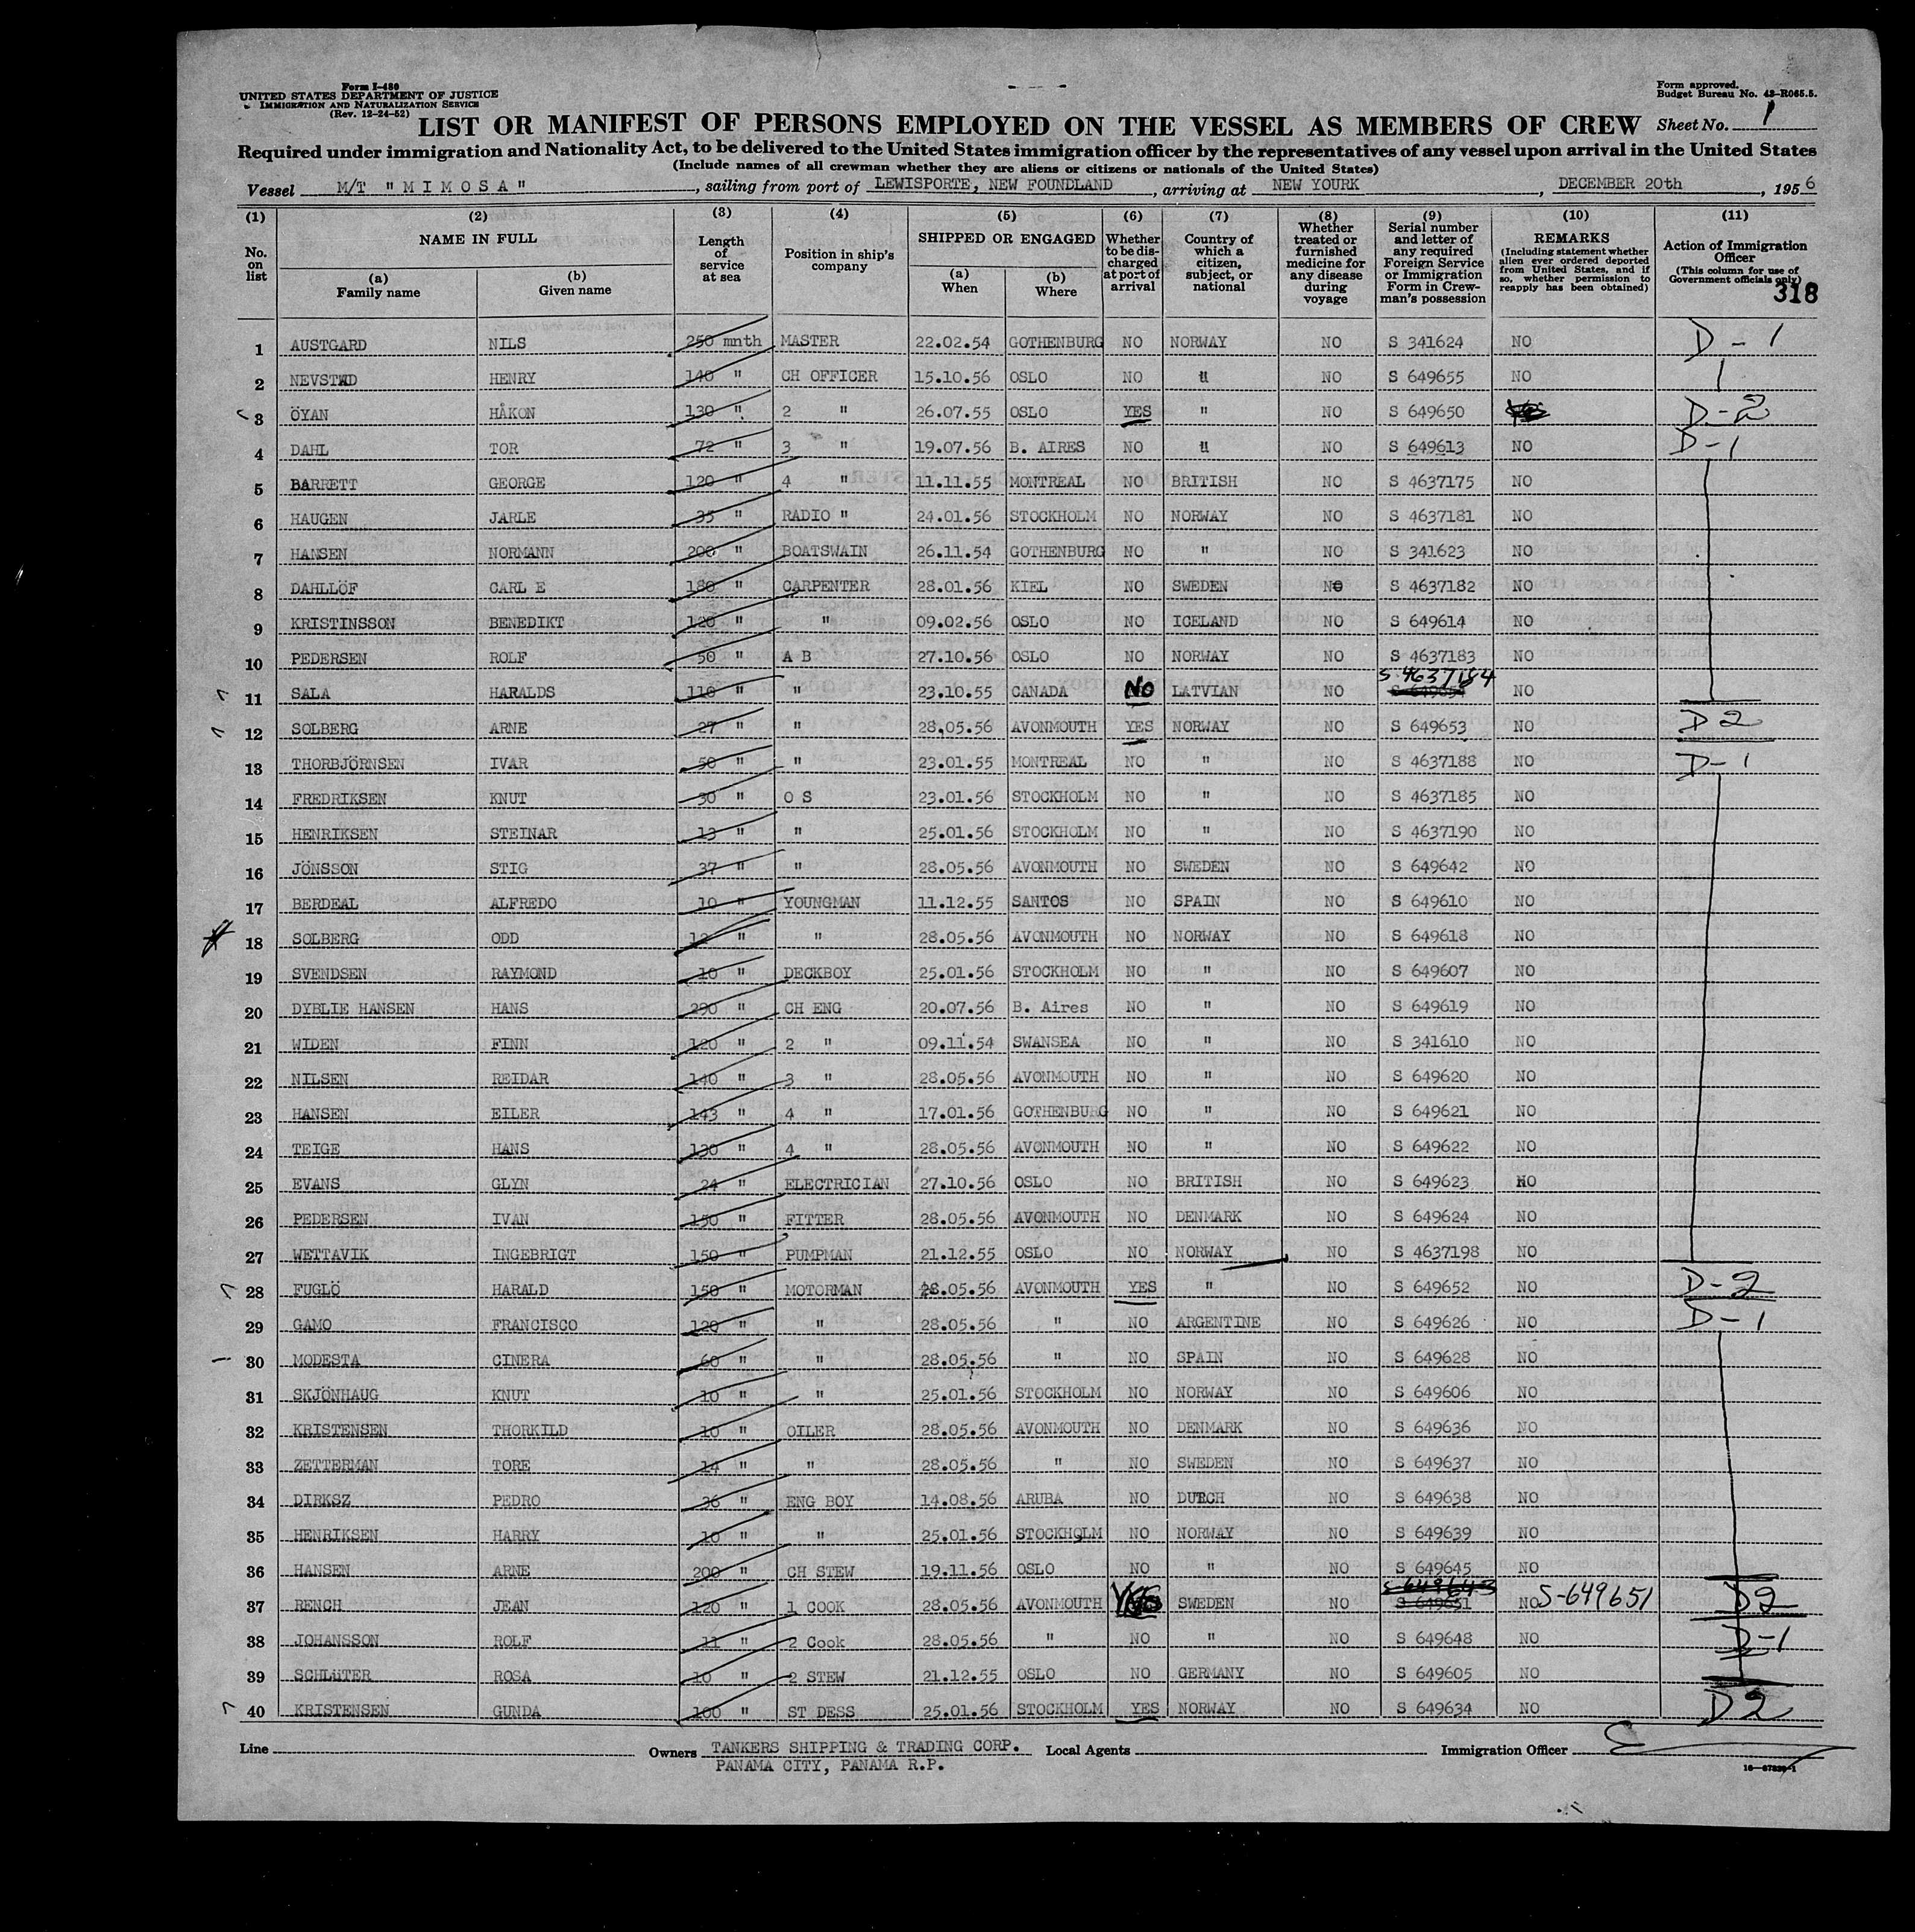 Form I-480
UNITED STATES DEPARTMENT OF JUSTICE
IMMIGRATION AND NATURALIZATION SERVICE
(Rev. 12-24-52)
Form approved.
Budget Bureau No. 43-R065.5.
LIST OR MANIFEST OF PERSONS EMPLOYED ON THE VESSEL AS MEMBERS OF CREW Sheet No. 1
Required under immigration and Nationality Act, to be delivered to the United States immigration officer by the representatives of any vessel upon arrival in the United States
(Include names of all crewman whether they are aliens or citizens or nationals of the United States)
Vessel M/T "MIMOSA", sailing from port of LEWISPORTE, NEW FOUNDLAND, arriving at NEW YOURK, DECEMBER 20th, 1956
(1) No. on list
(2) NAME IN FULL (a) Family name (b) Given name
(3) Length of service at sea
(4) Position in ship's company
(5) SHIPPED OR ENGAGED (a) When (b) Where
(6) Whether to be discharged at port of arrival
(7) Country of which a citizen, subject, or national
(8) Whether treated or furnished medicine for any disease during voyage
(9) Serial number and letter of any required Foreign Service or Immigration Form in Crewman's possession
(10) REMARKS (Including statement whether alien ever ordered deported from United States, and if so, whether permission to reapply has been obtained)
(11) Action of Immigration Officer (This column for use of Government officials only)
318
1 AUSTGARD NILS 250 mnth MASTER 22.02.54 GOTHENBURG NO NORWAY NO S 341624 NO D-1
2 NEVSTAD HENRY 140 " CH OFFICER 15.10.56 OSLO NO " NO S 649655 NO
3 ÖYAN HÅKON 130 " 2 " 26.07.55 OSLO YES " NO S 649650 D-2
4 DAHL TOR 72 " 3 " 19.07.56 B. AIRES NO " NO S 649613 NO D-1
5 BARRETT GEORGE 120 " 4 " 11.11.55 MONTREAL NO BRITISH NO S 4637175 NO
6 HAUGEN JARLE 35 " RADIO " 24.01.56 STOCKHOLM NO NORWAY NO S 4637181 NO
7 HANSEN NORMANN 200 " BOATSWAIN 26.11.54 GOTHENBURG NO " NO S 341623 NO
8 DAHLLÖF CARL E 180 " CARPENTER 28.01.56 KIEL NO SWEDEN NO S 4637182 NO
9 KRISTINSSON BENEDIKT 120 " " 09.02.56 OSLO NO ICELAND NO S 649614 NO
10 PEDERSEN ROLF 50 " A B 27.10.56 OSLO NO NORWAY NO S 4637183 NO
11 SALA HARALDS 118 " " 23.10.55 CANADA NO LATVIAN NO S-4637184 NO
12 SOLBERG ARNE 27 " " 28.05.56 AVONMOUTH YES NORWAY NO S 649653 NO D2
13 THORBJÖRNSEN IVAR 50 " " 23.01.55 MONTREAL NO " NO S 4637188 NO D-1
14 FREDRIKSEN KNUT 30 " O S 23.01.56 STOCKHOLM NO " NO S 4637185 NO
15 HENRIKSEN STEINAR 13 " " 25.01.56 STOCKHOLM NO " NO S 4637190 NO
16 JÖNSSON STIG 37 " " 28.05.56 AVONMOUTH NO SWEDEN NO S 649642 NO
17 BERDEAL ALFREDO 10 " YOUNGMAN 11.12.55 SANTOS NO SPAIN NO S 649610 NO
18 SOLBERG ODD " " 28.05.56 AVONMOUTH NO NORWAY NO S 649618 NO
19 SVENDSEN RAYMOND 10 " DECKBOY 25.01.56 STOCKHOLM NO " NO S 649607 NO
20 DYBLIE HANSEN HANS 290 " CH ENG 20.07.56 B. Aires NO " NO S 649619 NO
21 WIDEN FINN 120 " 2 " 09.11.54 SWANSEA NO " NO S 341610 NO
22 NILSEN REIDAR 140 " 3 " 28.05.56 AVONMOUTH NO " NO S 649620 NO
23 HANSEN EILER 143 " 4 " 17.01.56 GOTHENBURG NO " NO S 649621 NO
24 TEIGE HANS 130 " 4 " 28.05.56 AVONMOUTH NO " NO S 649622 NO
25 EVANS GLYN 24 " ELECTRICIAN 27.10.56 OSLO NO BRITISH NO S 649623 NO
26 PEDERSEN IVAN 150 " FITTER 28.05.56 AVONMOUTH NO DENMARK NO S 649624 NO
27 WETTAVIK INGEBRIGT 150 " PUMPMAN 21.12.55 OSLO NO NORWAY NO S 4637198 NO
28 FUGLÖ HARALD 150 " MOTORMAN 28.05.56 AVONMOUTH YES " NO S 649652 NO D-2
29 GAMO FRANCISCO 120 " " 28.05.56 " NO ARGENTINE NO S 649626 NO D-1
30 MODESTA CINERA 60 " " 28.05.56 " NO SPAIN NO S 649628 NO
31 SKJÖNHAUG KNUT 10 " " 25.01.56 STOCKHOLM NO NORWAY NO S 649606 NO
32 KRISTENSEN THORKILD 10 " OILER 28.05.56 AVONMOUTH NO DENMARK NO S 649636 NO
33 ZETTERMAN TORE 14 " " 28.05.56 " NO SWEDEN NO S 649637 NO
34 DIRKSZ PEDRO 36 " ENG BOY 14.08.56 ARUBA NO DUTCH NO S 649638 NO
35 HENRIKSEN HARRY 10 " " 25.01.56 STOCKHOLM NO NORWAY NO S 649639 NO
36 HANSEN ARNE 200 " CH STEW 19.11.56 OSLO NO " NO S 649645 NO
37 RENCH JEAN 120 " 1 COOK 28.05.56 AVONMOUTH YES SWEDEN NO S-649643 S 649651 NO S-649651 D2
38 JOHANSSON ROLF 11 " 2 Cook 28.05.56 " NO " NO S 649648 NO D-1
39 SCHLüTER ROSA 10 " 2 STEW 21.12.55 OSLO NO GERMANY NO S 649605 NO
40 KRISTENSEN GUNDA 100 " ST DESS 25.01.56 STOCKHOLM YES NORWAY NO S 649634 NO D2
Line Owners TANKERS SHIPPING & TRADING CORP. Local Agents Immigration Officer
PANAMA CITY, PANAMA R.P.